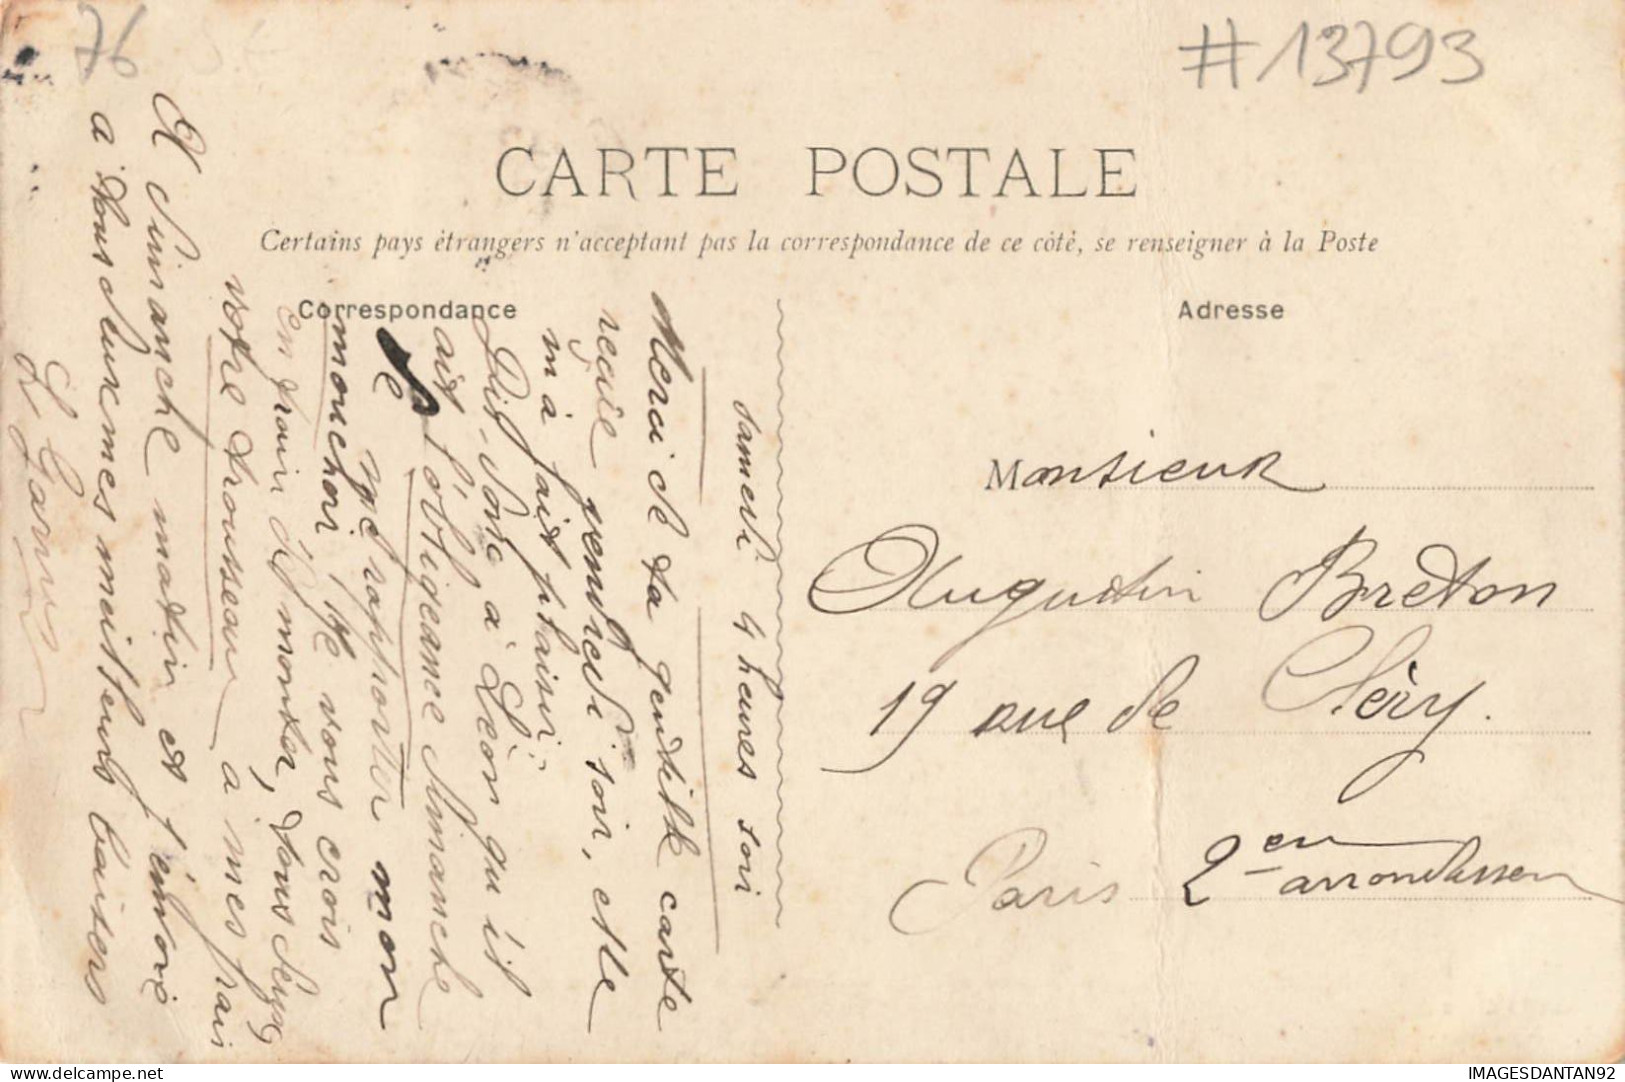 76
#13793
CARTE POSTALE
Certains pays étrangers n'acceptant pas la correspondance de ce côté, se renseigner à la Poste
Correspondance
Adresse
samedi 4 heures soir
Merci de ta gentille carte
reçue vendredi soir, elle
m'a fait plaisir.
Dis-donc à Léon qu'il
ait l'obligeance dimanche
de me rapporter mon
mouchoir, je vous crois
en train d'y monter, tous deux
votre trousseau à mes frais
A dimanche matin et j'envoie
à tous deux mes meilleurs baisers
L
Monsieur
Augustin Breton
19 rue de Cléry.
Paris 2en arrondissem
IMAGESDANTAN92